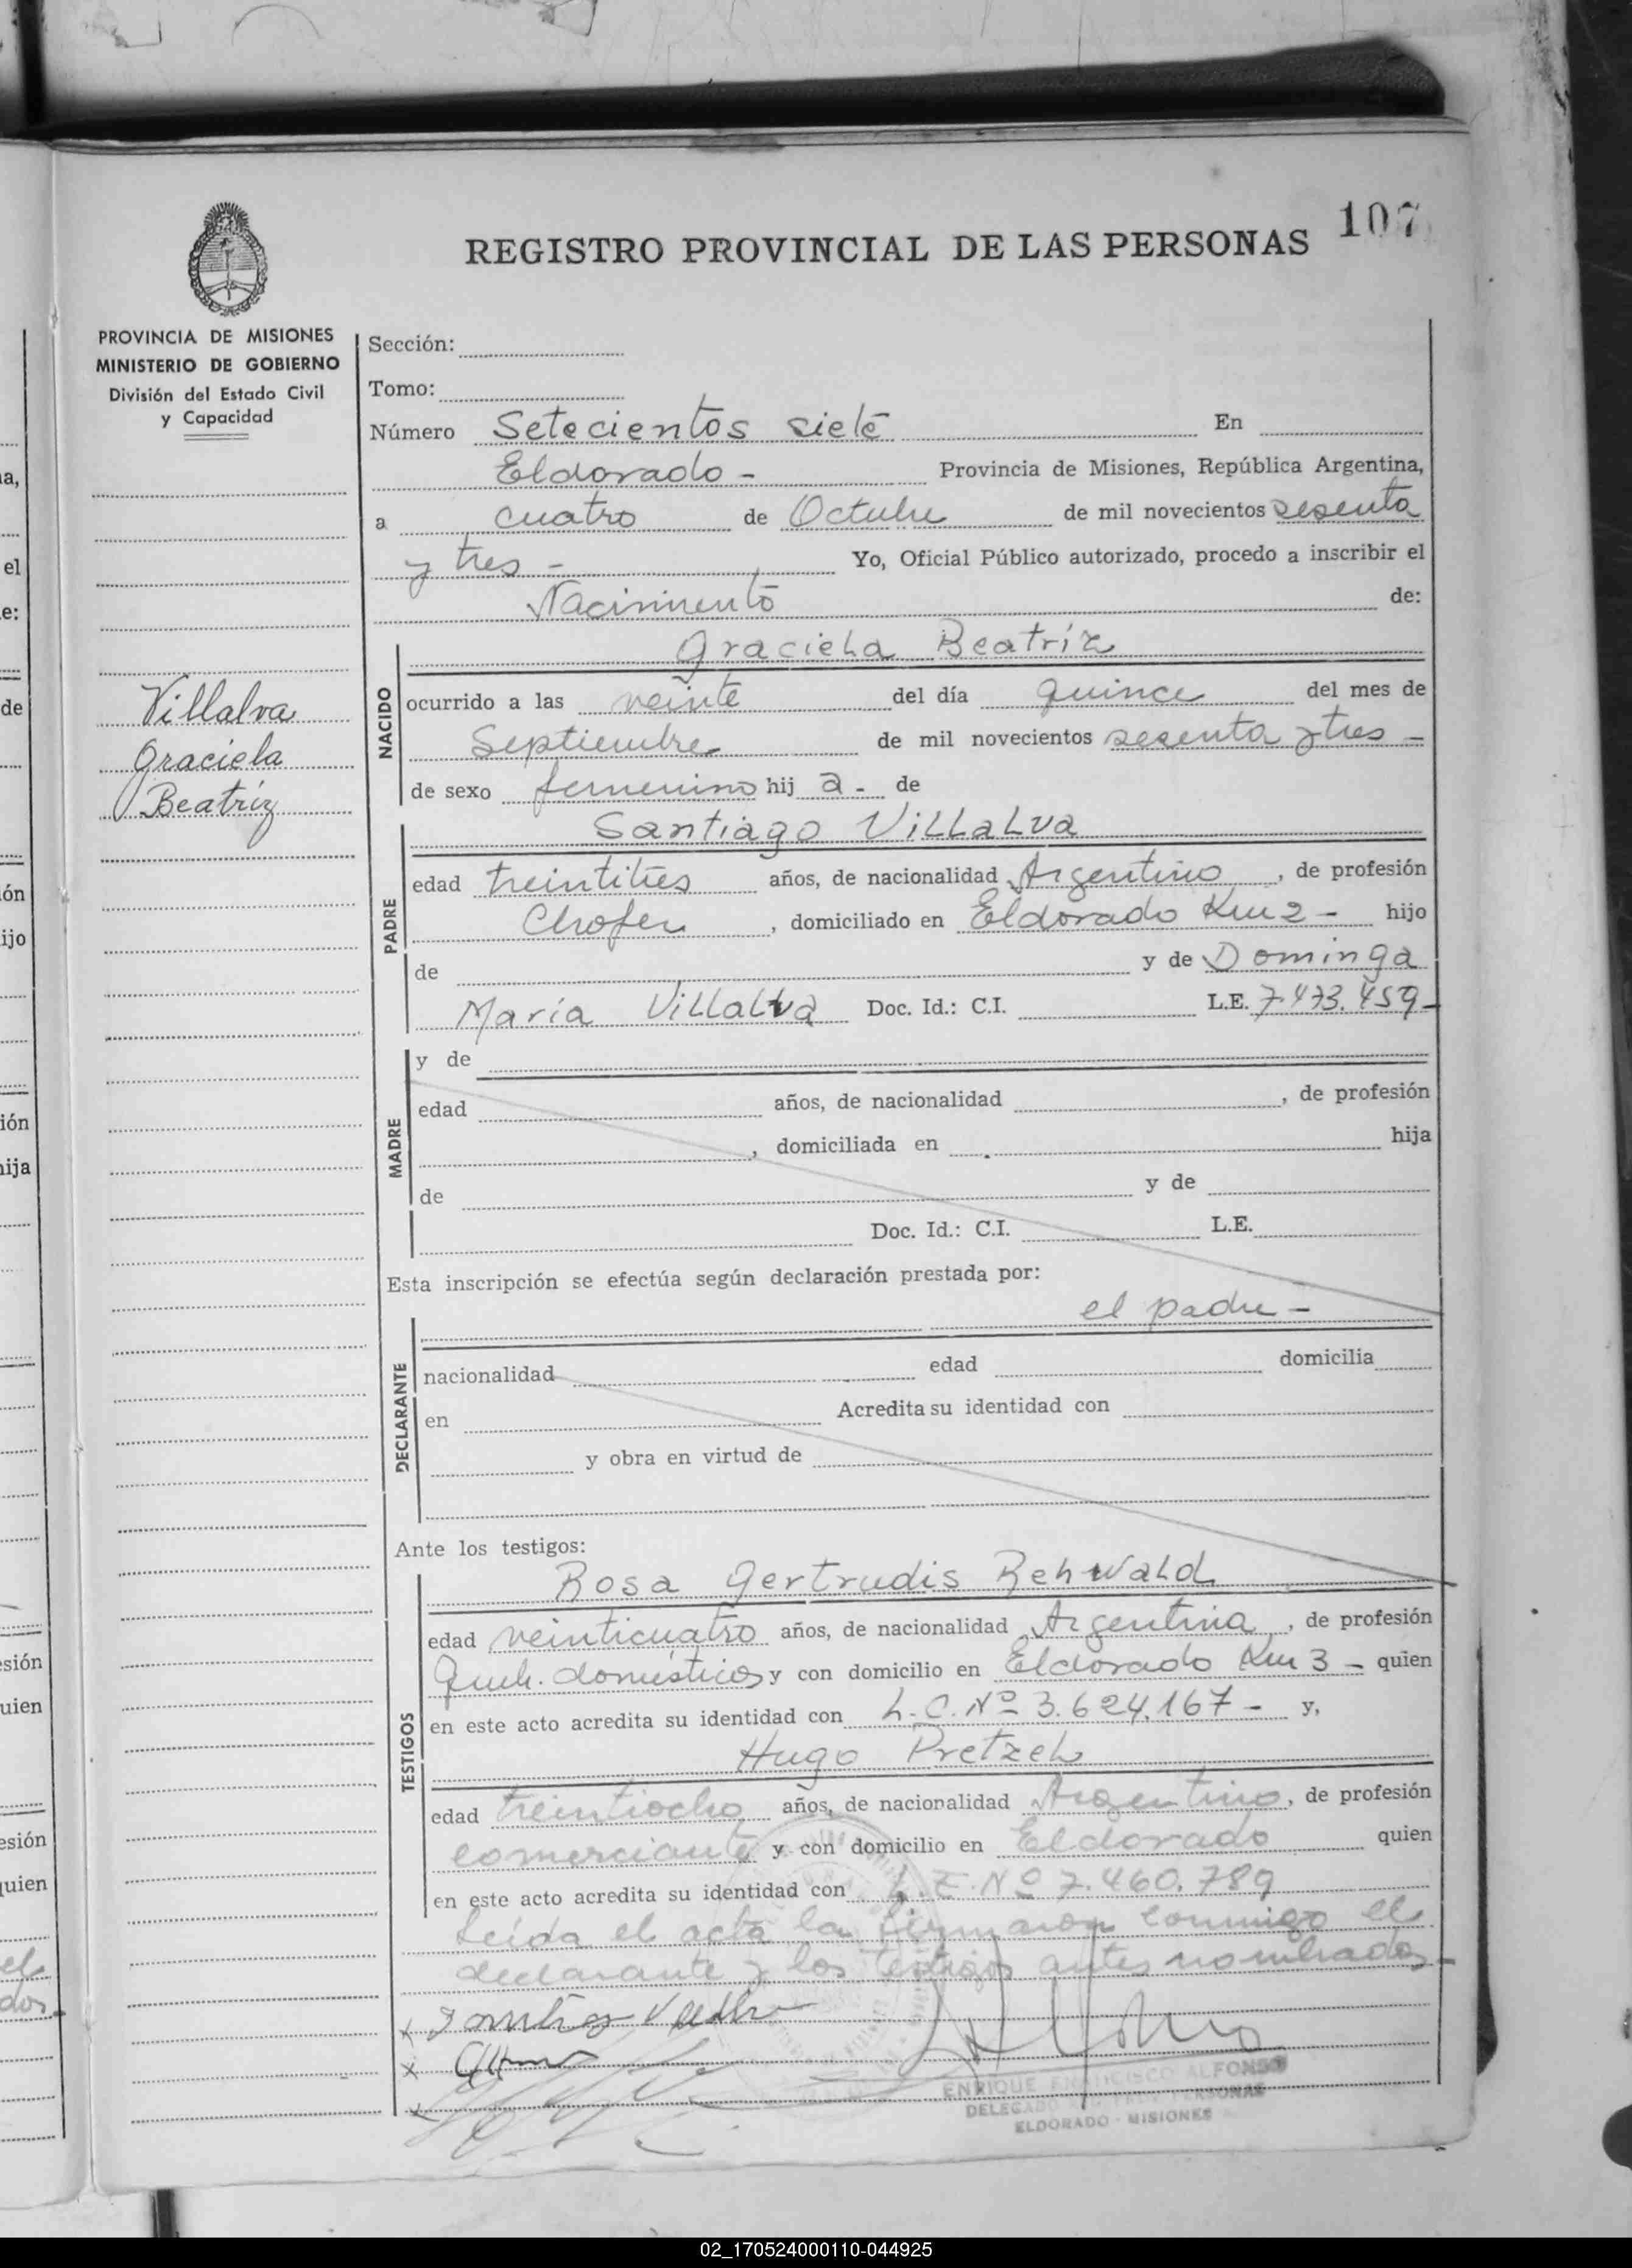 107
REGISTRO PROVINCIAL DE LAS PERSONAS
PROVINCIA DE MISIONES
MINISTERIO DE GOBIERNO
División del Estado Civil
y Capacidad
Villalva
Graciela
Beatríz
Sección:
Tomo:
Número Setecientos siete En
Eldorado - Provincia de Misiones, República Argentina,
a cuatro de Octubre de mil novecientos sesenta
y tres - Yo, Oficial Público autorizado, procedo a inscribir el
Nacimiento de:
NACIDO
Graciela Beatríz
ocurrido a las veinte del día quince del mes de
Septiembre de mil novecientos sesenta y tres -
de sexo femenino hij a - de
PADRE
Santiago Villalva
edad treintitres años, de nacionalidad Argentino, de profesión
Chofer, domiciliado en Eldorado Km 2 - hijo
de y de Dominga
María Villalva Doc. Id.: C.I. L.E. 7.473.459 -
MADRE
y de
edad años, de nacionalidad , de profesión
, domiciliada en hija
de y de
Doc. Id.: C.I. L.E.
Esta inscripción se efectúa según declaración prestada por:
el padre -
DECLARANTE
nacionalidad edad domicilia
en Acredita su identidad con
y obra en virtud de
Ante los testigos:
TESTIGOS
Rosa Gertrudis Rehwald
edad veinticuatro años, de nacionalidad Argentina, de profesión
Queh. domésticos y con domicilio en Eldorado Km 3 - quien
en este acto acredita su identidad con L.C. Nº 3.624.167 - y,
Hugo Pretzel
edad treintiocho años, de nacionalidad Argentino, de profesión
comerciante y con domicilio en Eldorado quien
en este acto acredita su identidad con L.E. Nº 7.460.789
Leída el acta la firmaron conmigo el
declarante y los testigos antes nombrados -
ENRIQUE FRANCISCO ALFONSO
ELDORADO - MISIONES
a,
el
e:
de
ón
ijo
ión
hija
sión
uien
esión
quien
el
dos -
02_170524000110-044925